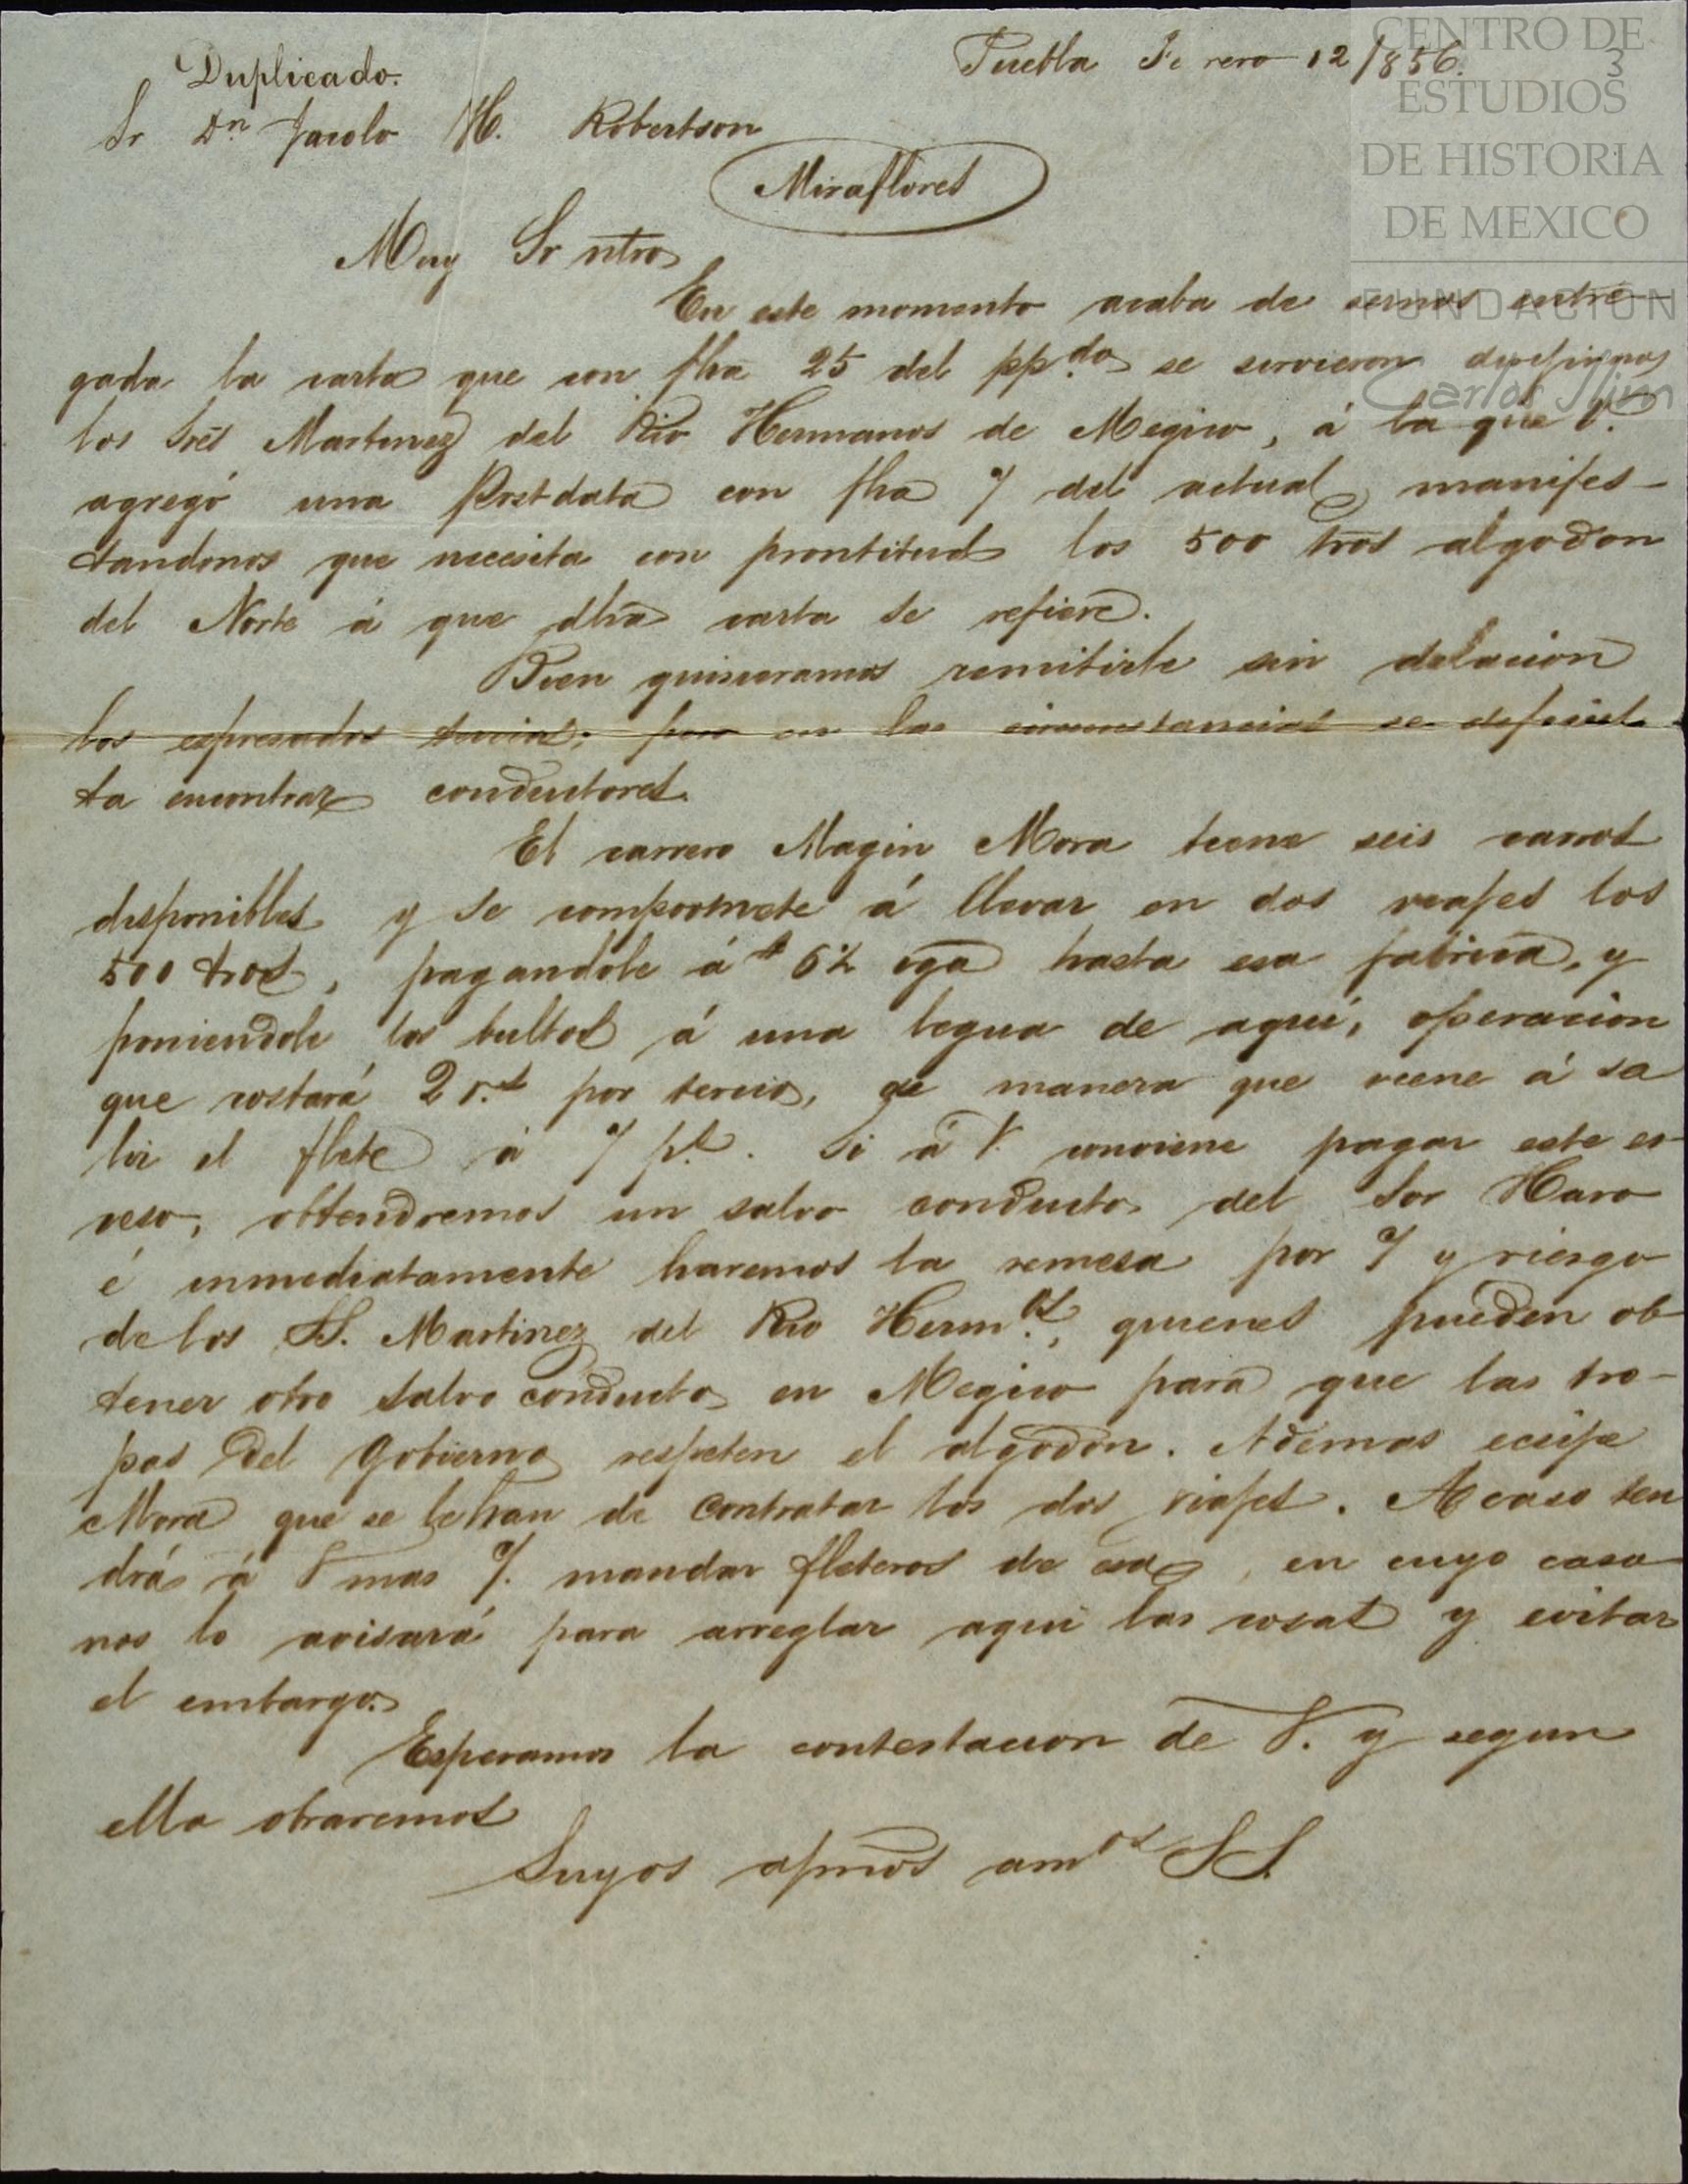 Duplicado.
Puebla Fe rero 12/856.
3
Sr Dn Jacolo H. Robertson
Miraflores
Muy Sr ntro
En este momento acaba de sernos entre-
gada la carta que con fha 25 del pp.do se servieron
los Sres Martinez del Rio Hermanos de Megico, á la que V.
agregó una Postdata con fha 7 del actual, manifes-
tandonos que necesita con prontitud los 500 tros algodon
del Norte á que dha carta se refiere.
Bien quisieramos remitirle sin dalacion
los espresados tercios; pero en las circunstancias se deficul
ta encontrar conductores.
El carrero Magin Mora tiene seis carros
disponibles y se compromete á llevar en dos viajes los
500 tros, pagandole á $ 6½ cga hasta esa fabrica, y
poniendole los bultos á una legua de aquí, operacion
que costará 2 r.s por tercio, de manera que viene á sa
lir el flete á 7 p.s. Si á V. conviene pagar este es-
ceso, obtendremos un salvo conducto del Sor Haro
é inmediatamente haremos la remesa por 7 y riesgo
de los SS. Martinez del Rio Herm.os, quienes pueden ob
tener otro salvo conducto en Megico para que las tro-
pas del Gobierno respeten el algodon. Ademas ecsije
Mora que se le han de contratar los dos viajes. Acaso ten
drá á V mas 7. mandar fleteros de esa, en cuyo caso
nos lo avisará para arreglar aqui las cosas y evitar
el embargo.
Esperamos la contestacion de V. y segun
ella obraremos
Suyos afmos amos SS.
CENTRO DE
ESTUDIOS
DE HISTORIA
DE MEXICO
FUNDACIÓN
Carlos Slim